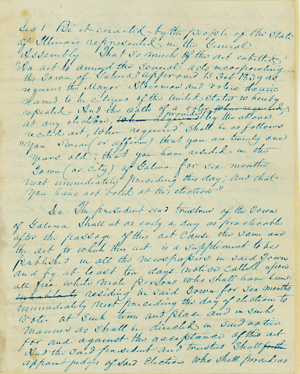 Sec 1 Be it enacted by the people of the State
of Illinois represented in the General
Assembly That so much of the act entitled
"An act to amend the several acts incorporating
the Town of Galena approved 15 Feb 1839 as
requires the Mayor Alderman and voters
to be citizens of the United States is hereby
repealed And the oath of a voter
at any election provided by the above
recited act, when required shall be as follows
"You swear (or affirm) that you are twenty one
years old; that you have resided in the
Town (or city) of Galena for six months
next immediately preceding this day; and that
you have not voted at this election"
Sec The president and trustees of the Town
of Galena shall at as early a day as practicable
after the passage of this act cause the same and
the act to which this act is a supplement to be
published in all the newspapers in said Town
and by at least ten days notice call upon
all free white male persons who shall have been
inhabitants residing in said Town for six months
immediately next preceding the day of election to
vote at such time and place and in such
manner as shall be directed in said notice
for and against the acceptance of this act
And the said president and trustees shall
appoint judges of said Election who shall proceed as